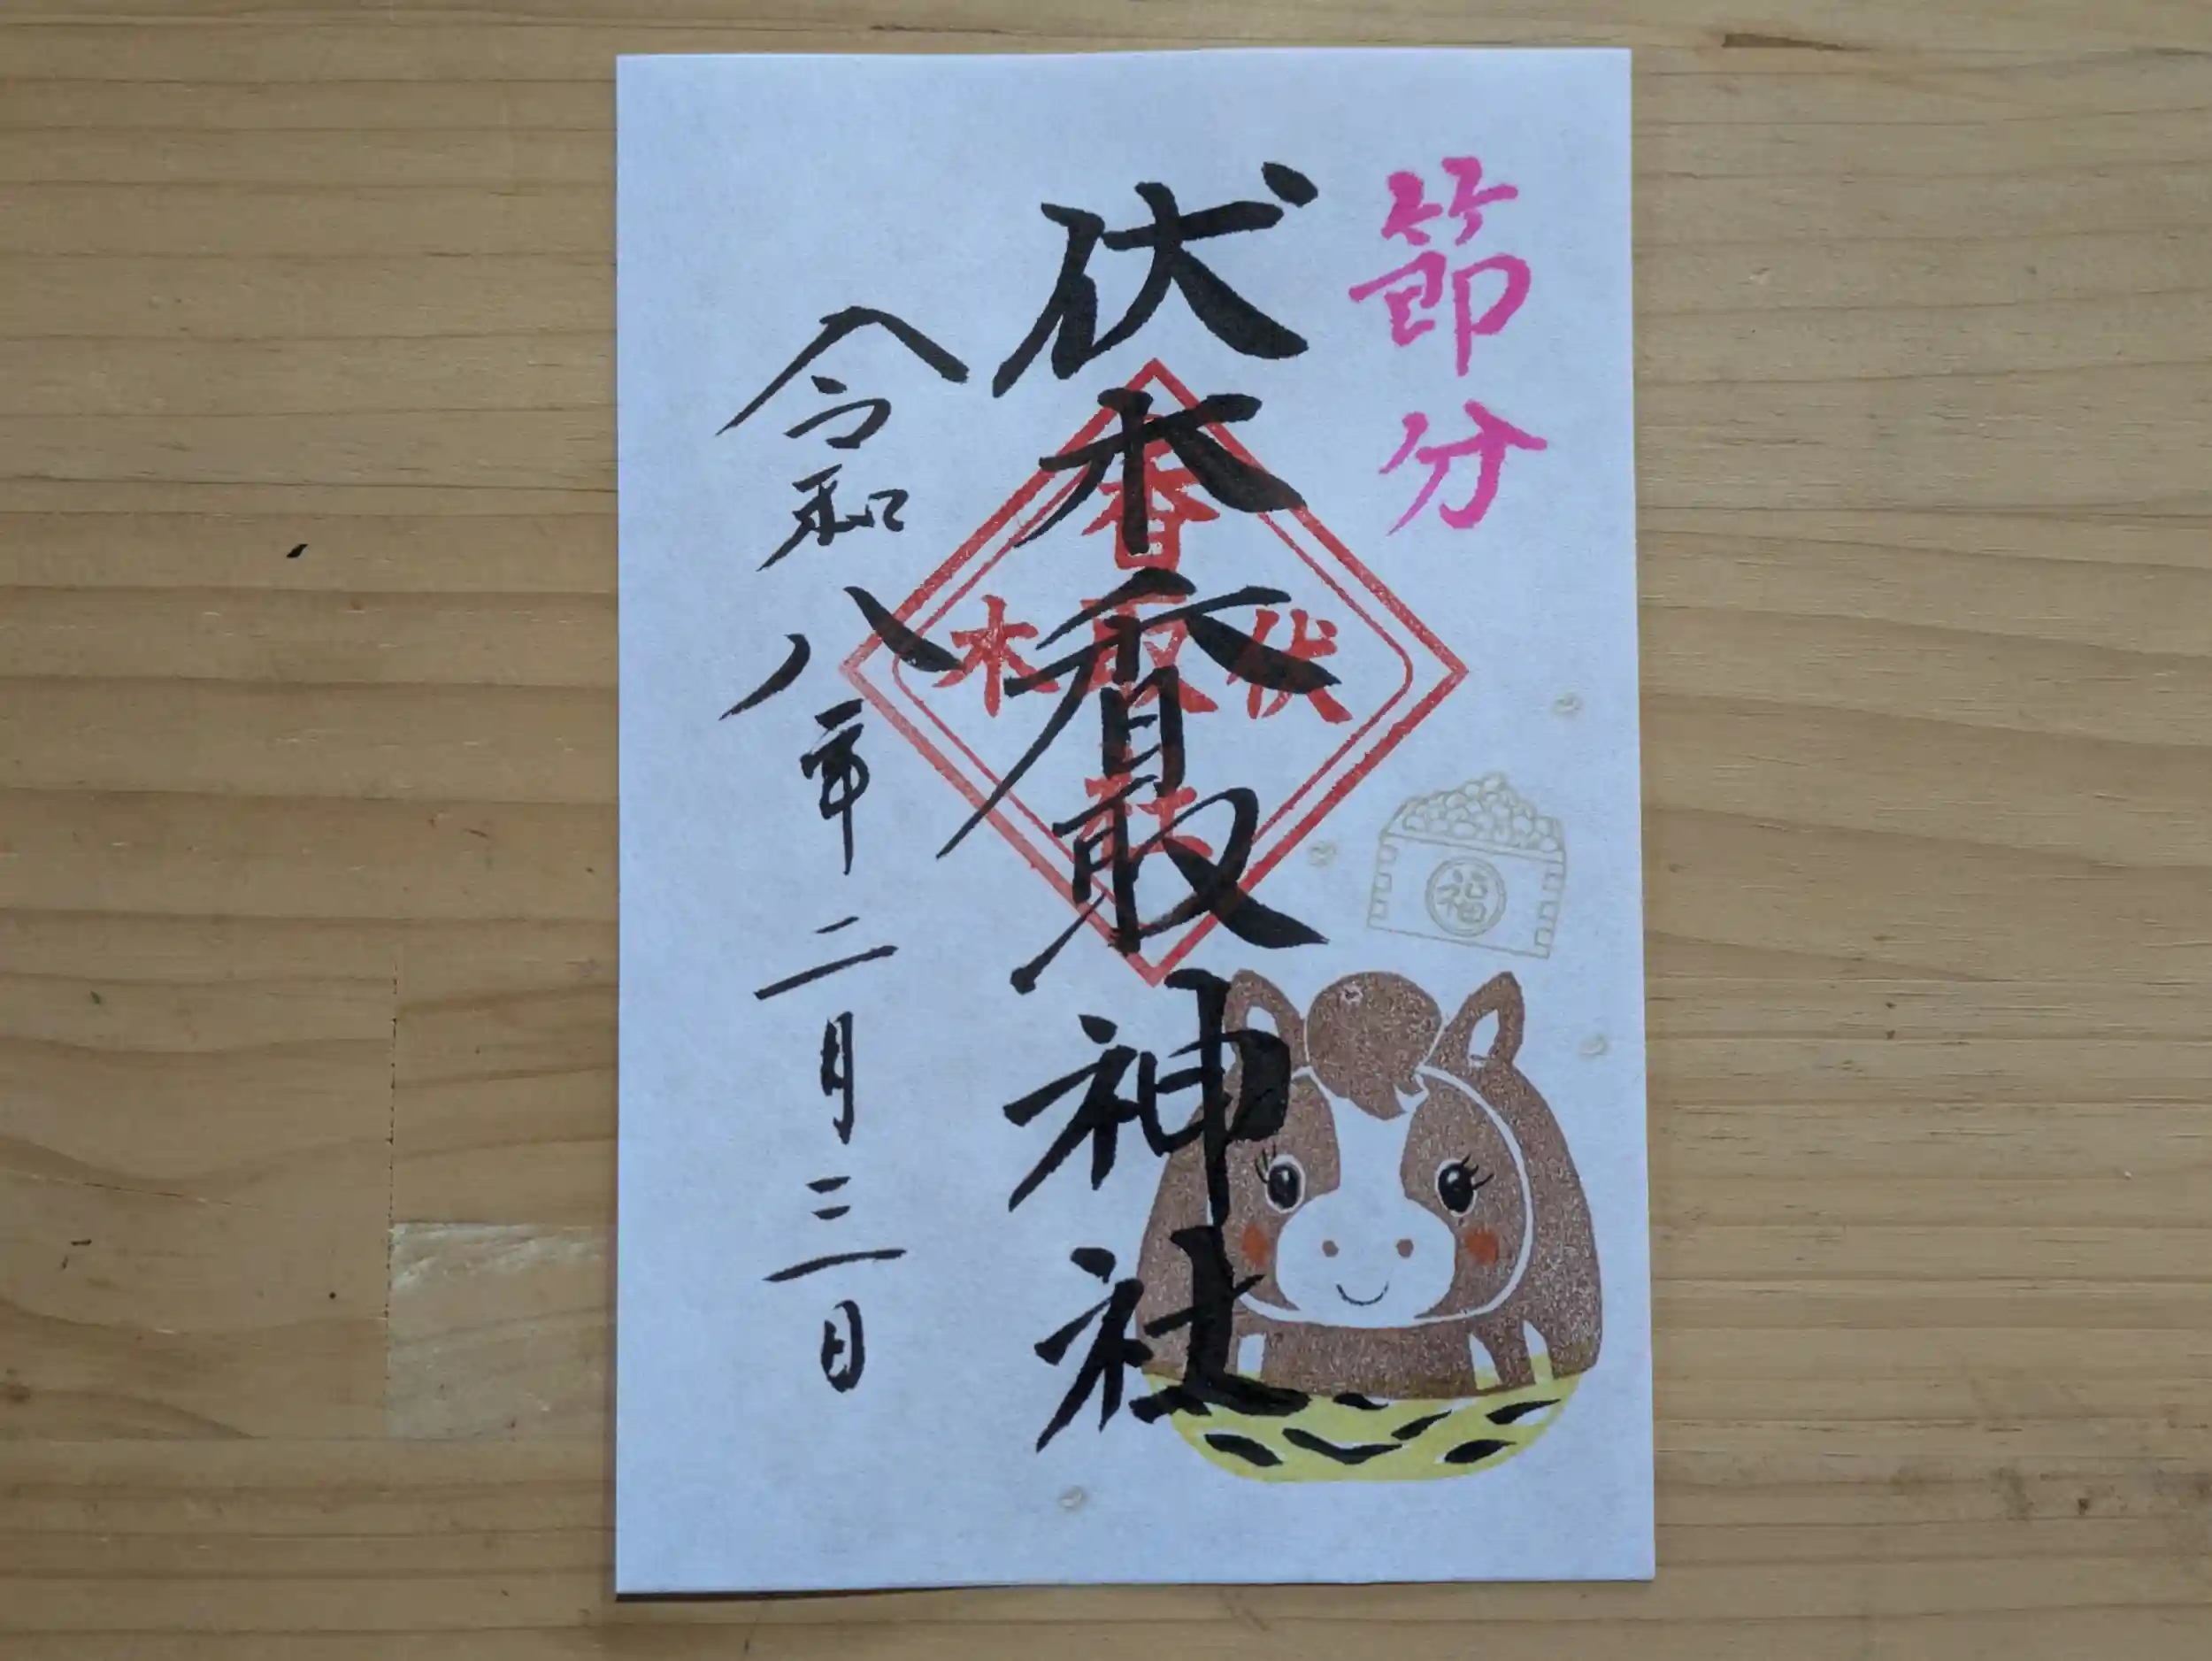 節分
伏木香取神社
令和八年二月三日
伏木
香取
社
福